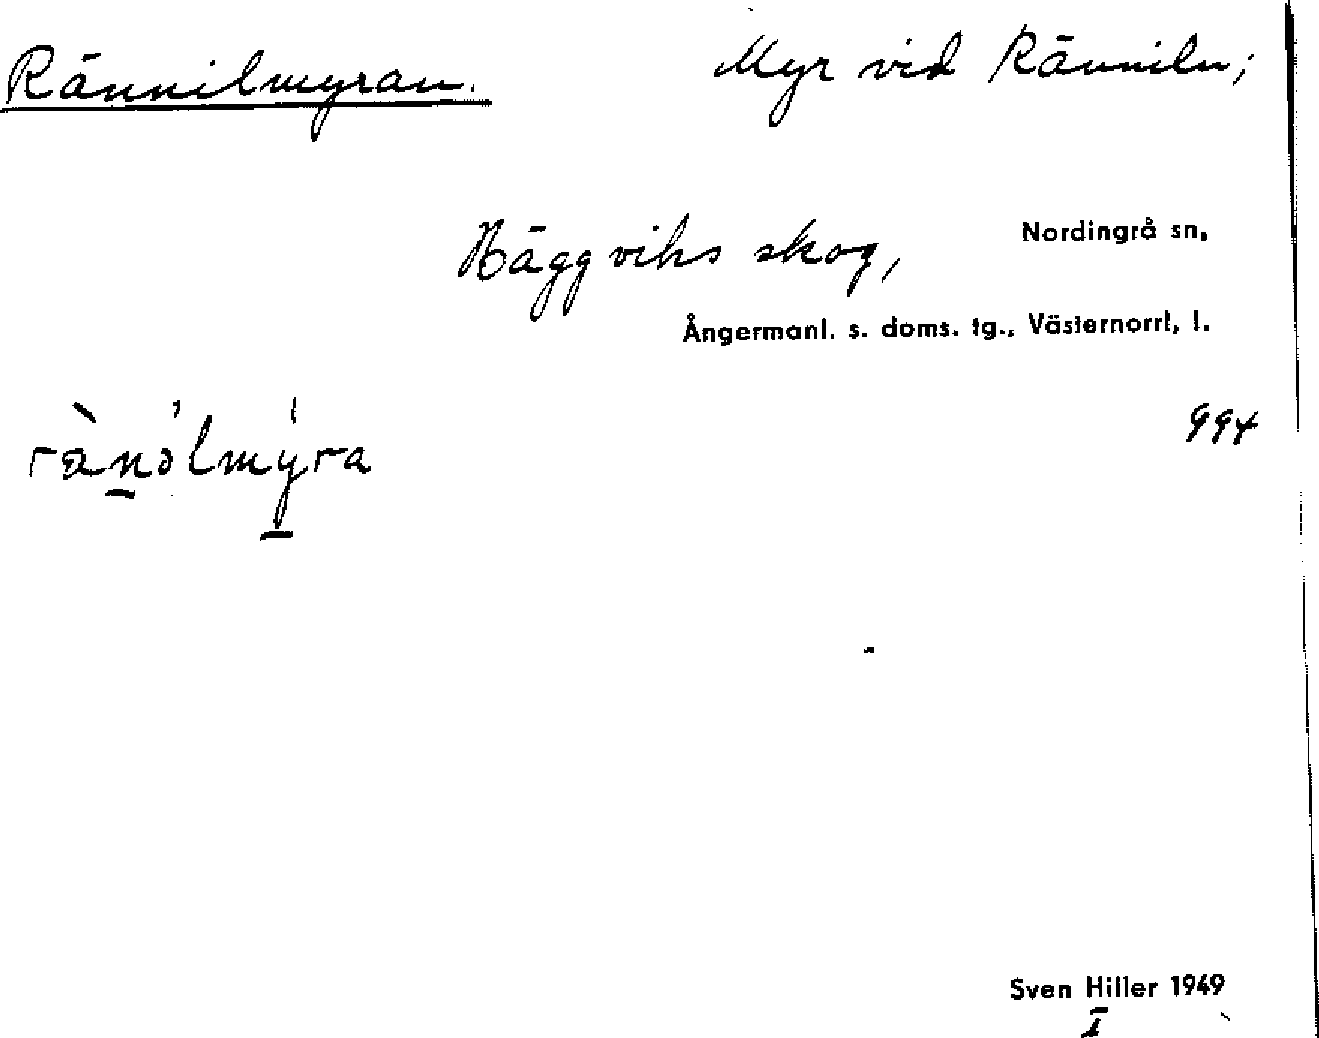 Rännilmyran. Myr vid Ränniln;
Häggviks skog, Nordingrå sn,
Ångermanl. s. doms. tg., Västernorrl, l.
994
rànəlmýra
Sven Hiller 1949
I